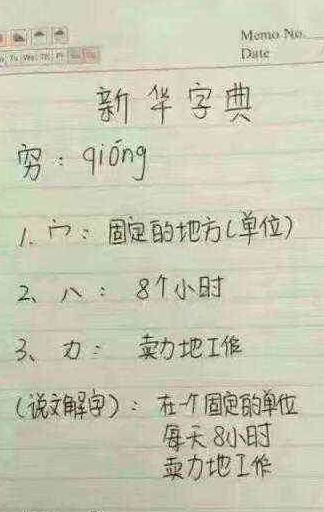 Memo No.
Date
新华字典
穷：qióng
1. 宀：固定的地方(单位)
2、八：8个小时
3、力：卖力地工作
(说文解字)：在一个固定的单位
每天8小时
卖力地工作